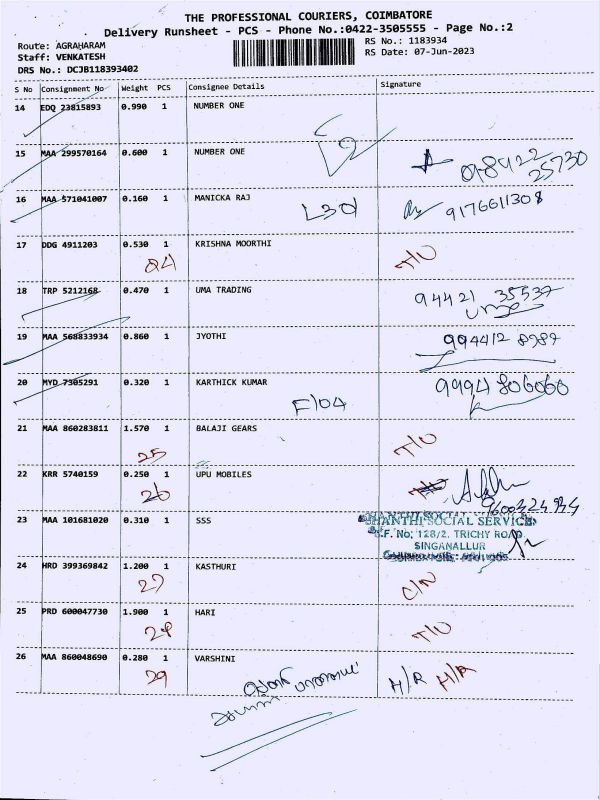 THE PROFESSIONAL COURIERS, COIMBATORE
Delivery Runsheet - PCS - Phone No.:0422-3505555 - Page No.:2
Route: AGRAHARAM
Staff: VENKATESH
DRS No.: DCJB118393402
RS No.: 1183934
RS Date: 07-Jun-2023
S No Consignment No Weight PCS Consignee Details Signature
14 EDQ 23815893 0.990 1 NUMBER ONE
15 MAA 299570164 0.600 1 NUMBER ONE
25730
16 MAA 571041007 0.160 1 MANICKA RAJ
L30 9176611308
17 DDG 4911203 0.530 1 KRISHNA MOORTHI
24 T/O
18 TRP 5212168 0.470 1 UMA TRADING
94421 35537
19 MAA 568833934 0.860 1 JYOTHI
994412 8987
20 MYD 7305291 0.320 1 KARTHICK KUMAR
F104 99941 806060
21 MAA 860283811 1.570 1 BALAJI GEARS
25 T/O
22 KRR 5740159 0.250 1 UPU MOBILES
26
23 MAA 101681020 0.310 1 SSS
SHANTHI SOCIAL SERVICE
S.F. No; 128/2, TRICHY ROAD
SINGANALLUR
24 HRD 399369842 1.200 1 KASTHURI
27 C/N
25 PRD 600047730 1.900 1 HARI
28 T/O
26 MAA 860048690 0.280 1 VARSHINI
29 H/R H/R